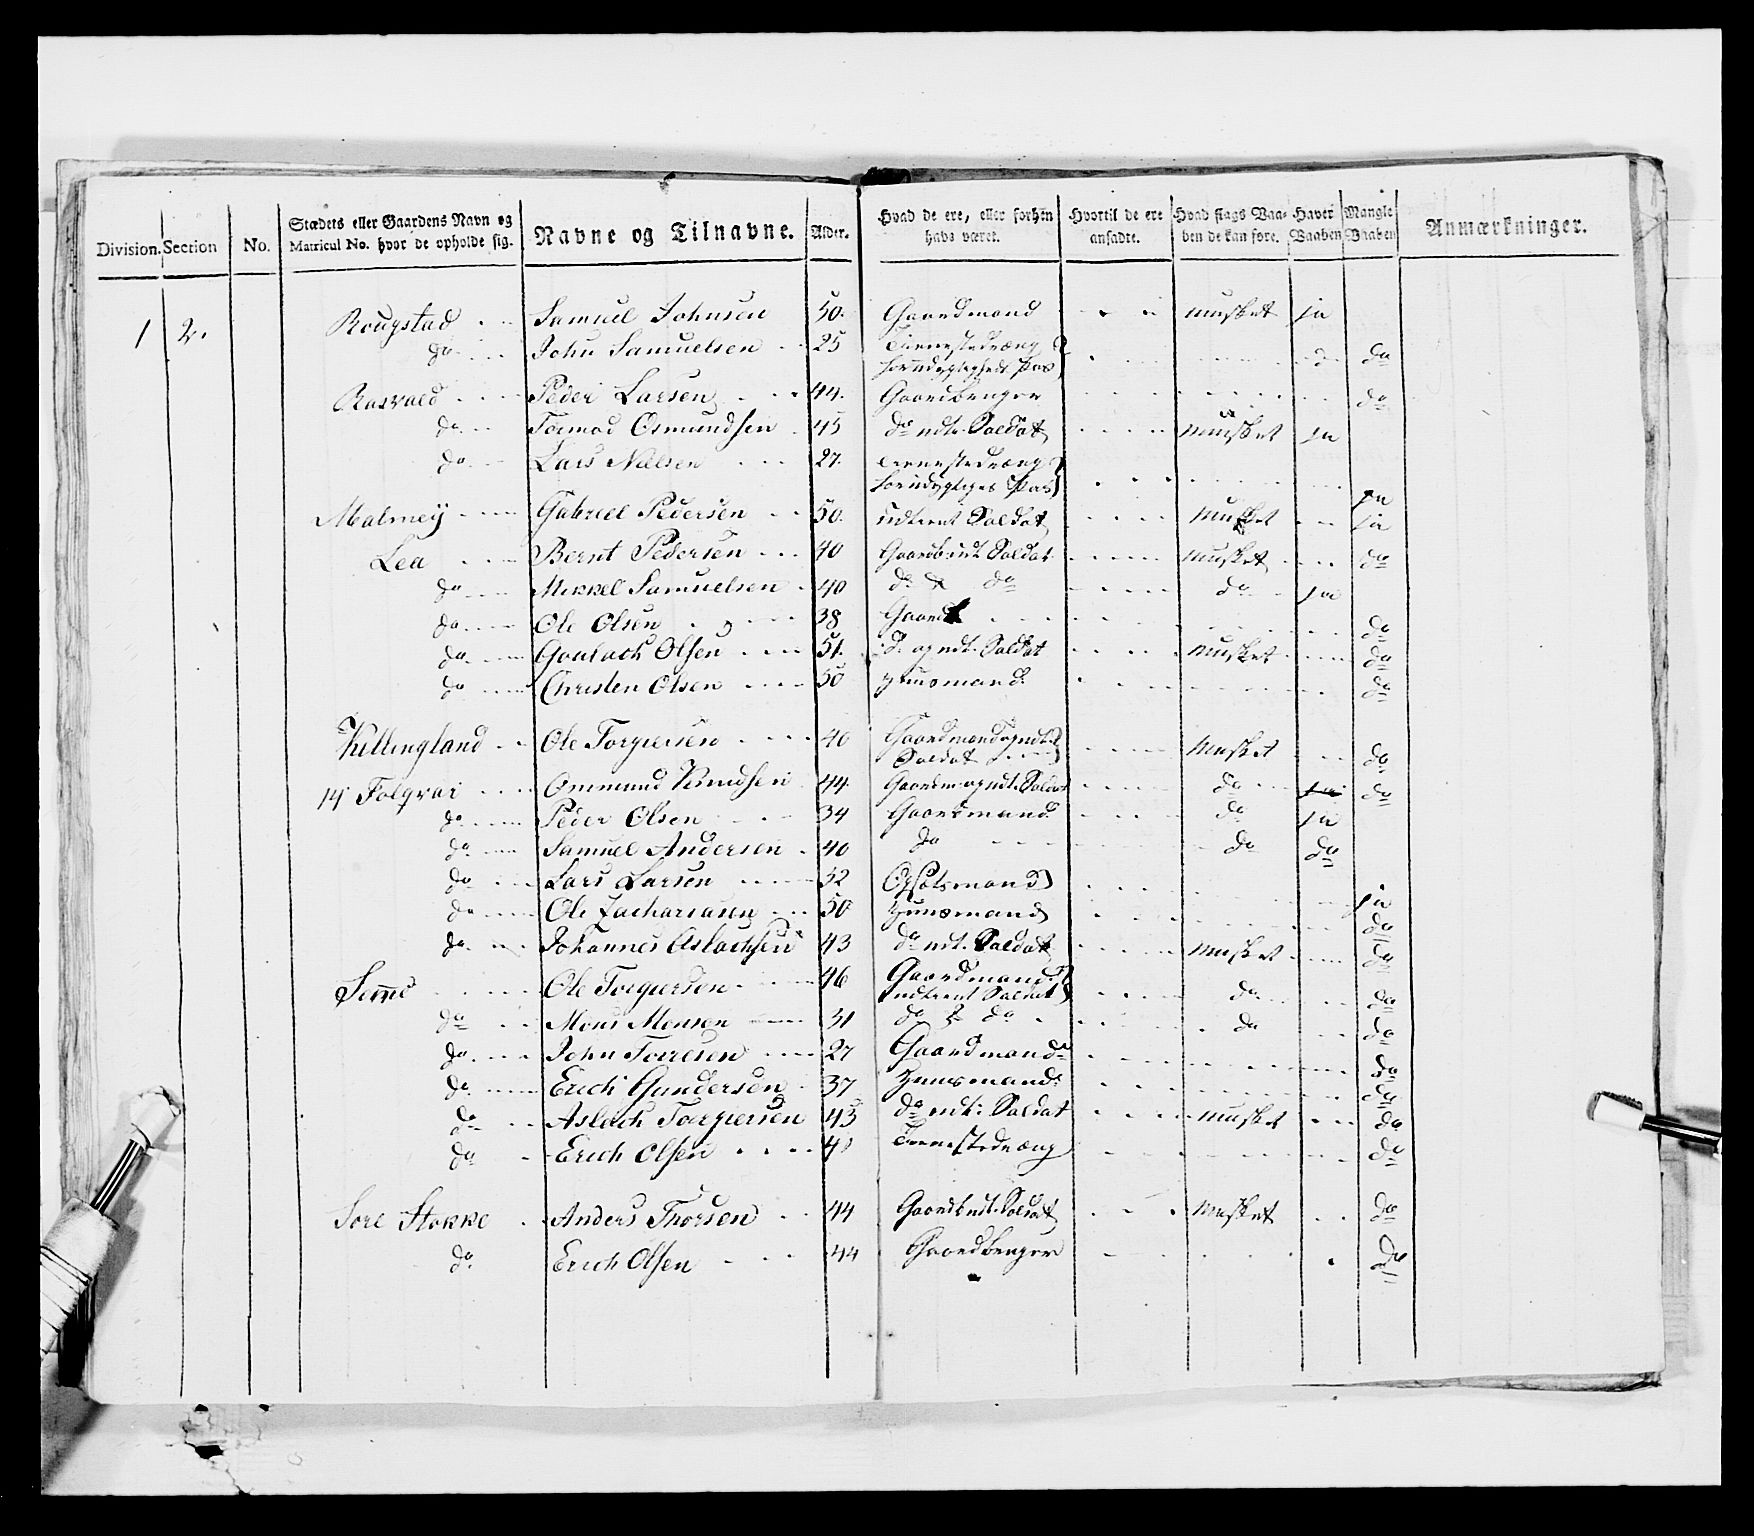 Division. Section No. Stædets eller Gaardens Navn og Matricul No. hvor de opholde sig. Navne og Tilnavne. Alder. Hvad de ere, eller forhen havs været. Hvortil de ere ansadte. Hvad slags Vaaben de kan føre. Haver Vaaben Mangle Vaaben Anmærkninger.
1 2. Rougstad Samuel Johnsen 50. Gaardmand musket ja
do John Samuelsen 25 Tienestedræng do
Rosvold Peder Larsen 44. Gaardbruger do
do Tormod Osmundsen 45 do udt. Soldat musket ja
do Lars Nielsen 27. Tienestedræng
ja
Malmey Gabriel Pedersen 50. udtient Soldat musket ja
Lea Bernt Pedersen 40 Gaardb. udt. Soldat musket do
do Mikkel Samuelsen 40 do & do do ja
do Ole Olsen 38 Gaard do
do Goulach Olsen 51. do og udt. Soldat musket do
do Christen Olsen 50 Huusmand do
Killingland Ole Torgiersen 40 Gaardmand og udt. Soldat musket do
14 Folqvar Ommund Knudsen 44. Gaardm. og udt. Soldat do ja do
do Peder Olsen 34 Gaardmand do ja
do Samuel Andersen 40 do do do
do Lars Larsen 32 Opsidsmand ja
do Ole Zachariasen 50 Huusmand do
do Johannes Aslachsen 43 do udt. Soldat musket do
Seme Ole Torgiersen 46 Gaardmand udtient Soldat do do
do Mons Monsen 31 do & do do do
do John Torresen 27 Gaardmand do
do Erich Gundersen 37 Huusmand do
do Aslach Torgiersen 43 do udt: Soldat musket do
do Erich Olsen Tienestedræng do
Sore Stokke Anders Thorsen 44 Gaardb. udt. Soldat musket do
do Erich Olsen 44 Gaardbruger do